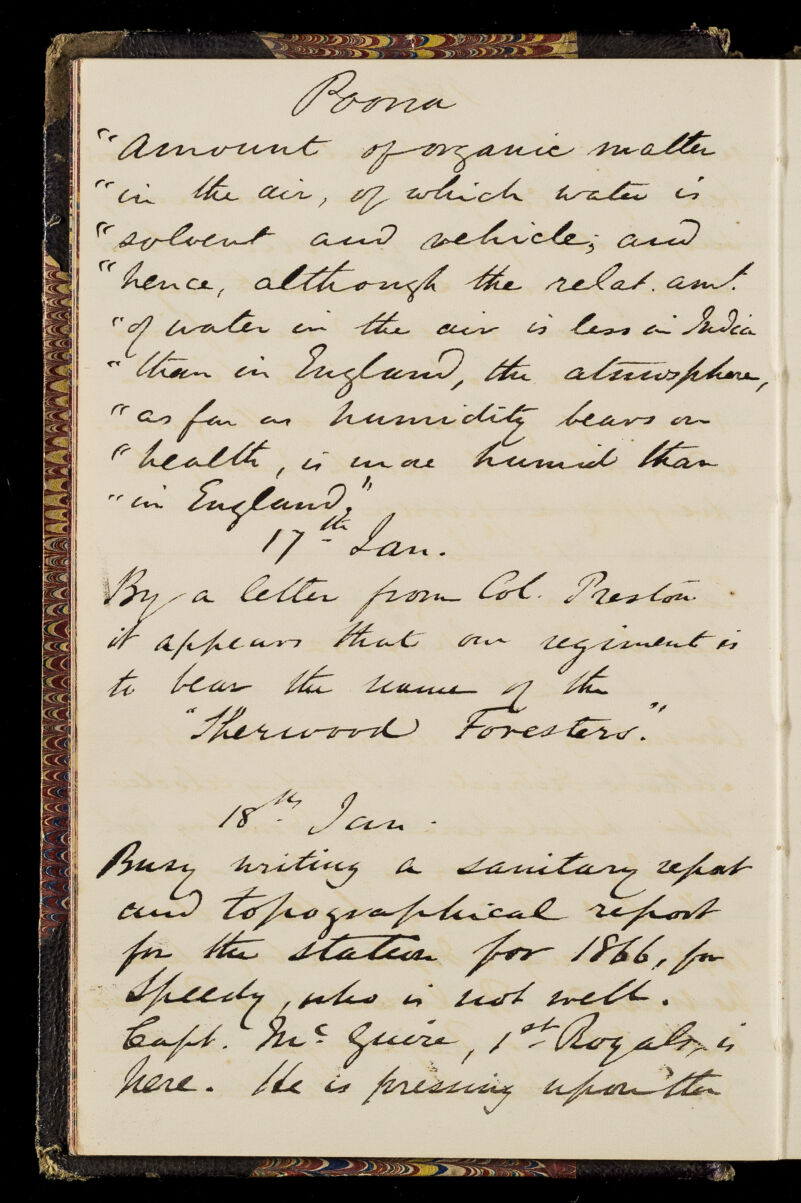 Poona
"Amount of organic matter
"in the air, of which water is
"solvent and vehicle; and
"hence, although the relat. amt.
"of water in the air is less in India
"than in England, the atmosphere,
"as far as humidity bears on
"health, is more humid than
"in England."
17th Jan.
By a letter from Col. Preston
it appears that our regiment is
to bear the name of the
"Sherwood Foresters."
18th Jan.
Busy writing a sanitary report
and topographical report
for the station for 1866, for
Speedy, who is not well.
Capt. McGuire, 1st Royals, is
here. He is pressing upon the